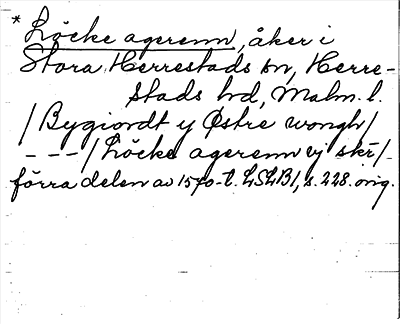 * Löcke agerenn, åker i
Stora Herrestads sn, Herre-
stads hd, Malm. l.
/ Bygiordt y Østre wongh /
- - - / Löcke agerenn vj skr /.
förra delen av 1570-t. LSLB1, s. 228. orig.